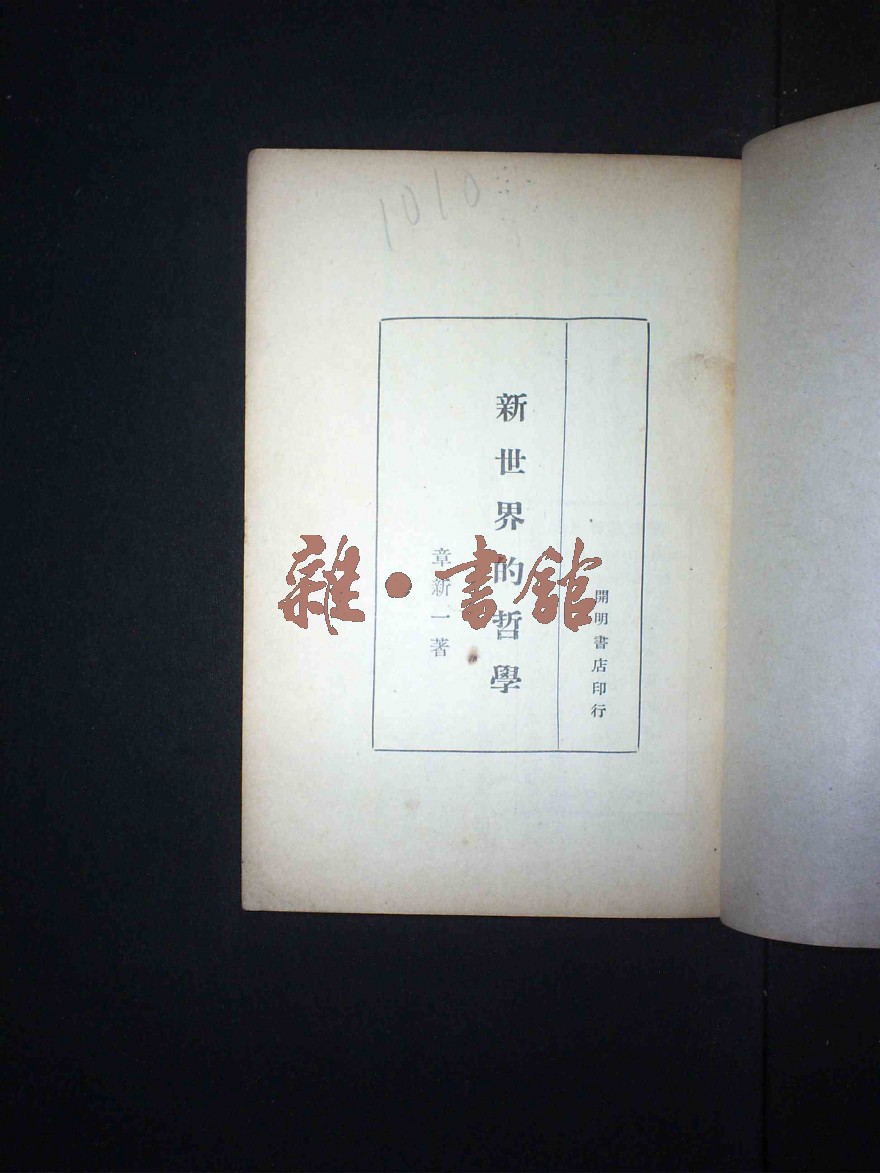 1010
開明書店印行
新世界的哲學
章新一著
雜•書館